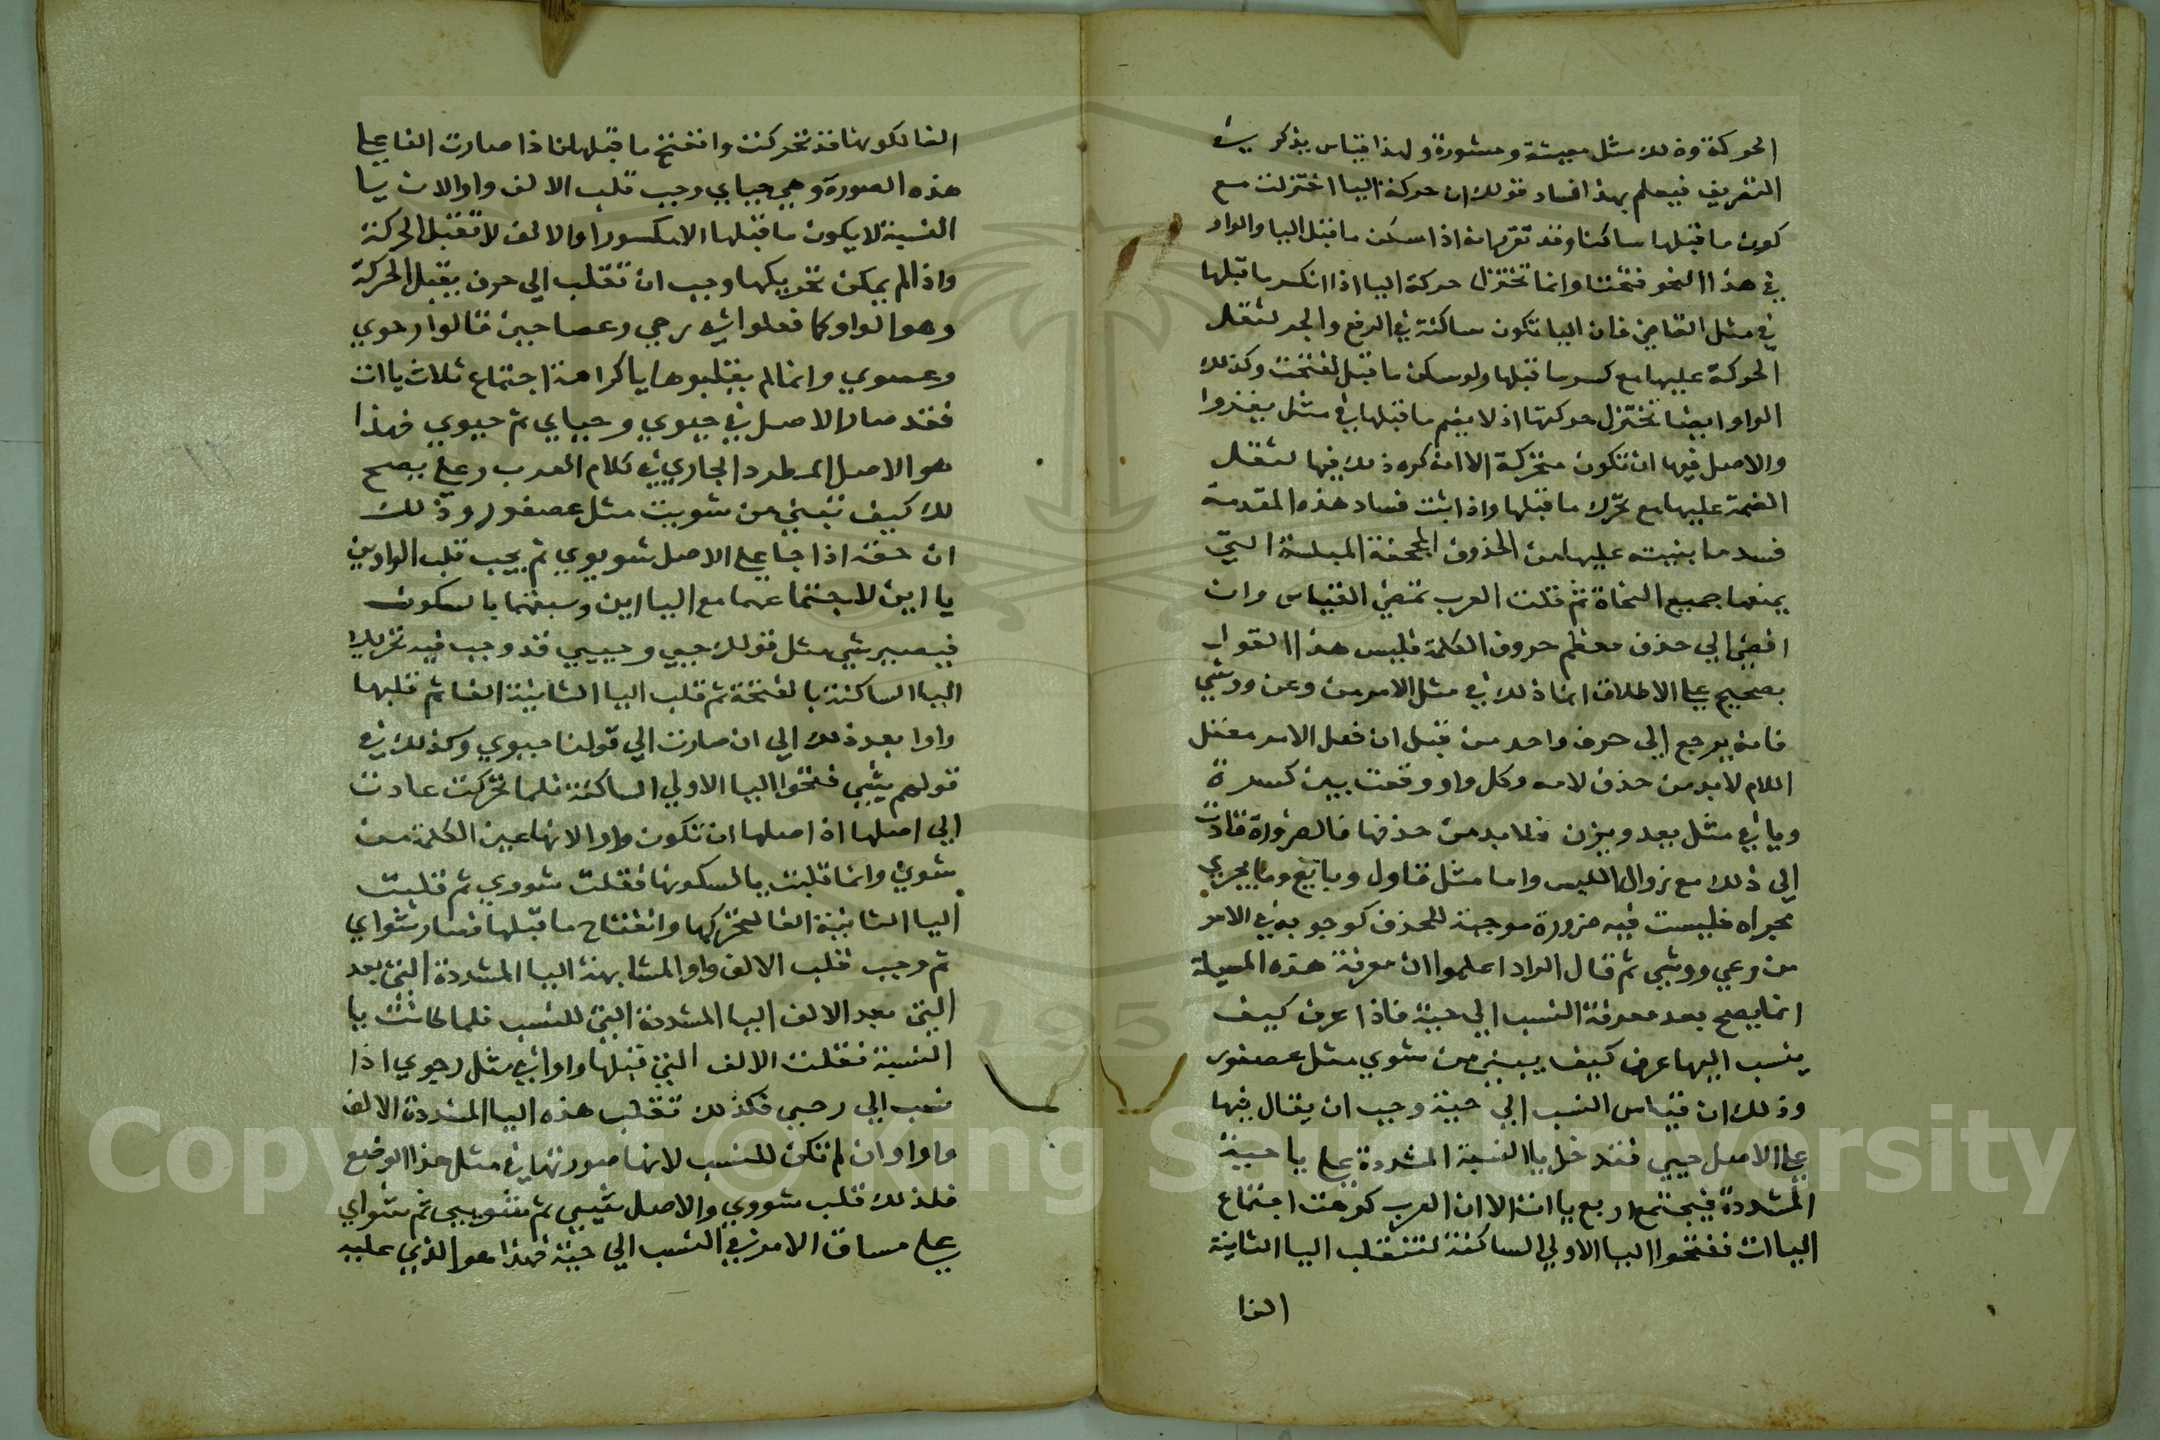 الحركة وذلك مثل معيشة ومشورة ولهذا قياس يذكر في
التصريف فيعلم بهذا فساد قولك ان حركة اليا اختزلت مع
كون ما قبلها ساكنا وقد تقرر انه اذا سكن ما قبل اليا والواو
في هذا النحو فتحتا وانما تختزل حركة اليا اذا انكسر ما قبلها
في مثل القاضي فان اليا تكون ساكنة في الرفع والجر لثقل
الحركة عليها مع كسر ما قبلها ولو سكن ما قبل لفتحت وكذلك
الواو ايضا تختزل حركتها اذ لا يضم ما قبلها في مثل يغزوا
والاصل فيها ان تكون متحركة الا ان كره ذلك فيها لثقل
الضمة عليها مع تحرك ما قبلها واذا ثبت فساد هذه المقدمة
فسد ما بنيته عليها من الحذوف المجحفة المبلسة التي
يمنعها جميع النحاة ثم قلت العرب تمضي القياس وان
افضى الي حذف معظم حروف الكلمة فليس هذا القول
بصحيح علي الاطلاق انما ذلك في مثل الامر من وعن ورشي
فانه يرجع الي حرف واحد من قبل ان فعل الامر معتل
اللام لا بد من حذف لامه وكل واو وقعت بين كسرة
ويا في مثل يعد ويزن فلا بد من حذفها فالضرورة قادت
الي ذلك مع زوال اللبس واما مثل قاول وبايع وما يجري
مجراه فليست فيه ضرورة موجبة للحذف كوجوبه في الامر
من وعي ووشي ثم قال الراد اعلموا ان معرفة هذه المسلة
انما يصح بعد معرفة النسب الي حية فاذا عرف كيف
ينسب اليها عرف كيف يبني من شوي مثل عصفور
وذلك ان قياس النسب الي حية وجب ان يقال فيها
علي الاصل حيي فتدخل يا النسبة المشددة علي يا حية
المشددة فيجتمع اربع ياات الا ان العرب كرهت اجتماع
الياات ففتحوا اليا الاولي الساكنة لتنقلب اليا الثانية
الفا
الفا لكونها قد تحركت وانفتح ما قبلها فاذا صارت الفا علي
هذه الصورة وهي حياي وجب قلب الالف واوا لان يا
النسبة لا يكون ما قبلها الا مكسورا والالف لا تقبل الحركة
واذا لم يمكن تحريكها وجب ان تقلب الي حرف يقبل الحركة
وهو الواو كما فعلوا في رحي وعصا حين قالوا رحوي
وعصوي وانما لم يقلبوها يا كراهة اجتماع ثلاث ياات
فقد صار الاصل في حيوي وحياي ثم حيوي فهذا
هو الاصل المطرد الجاري في كلام العرب وعليه يصح
لك كيف تبني من شويت مثل عصفور وذلك
ان حقه اذا جا علي الاصل شويوي ثم يجب قلب الواوين
ياين لاجتماعهما مع الياين وسبقهما بالسكون
فيصير شيي مثل قولك حيي وحيي قد وجب فيه تحريك
اليا الساكنة بالفتحة ثم قلب اليا الثانية الفا ثم قلبها
واوا بعد ذلك الي ان صارت الي قولنا حيوي وكذلك في
قولهم شيي فتحوا اليا الاولي الساكنة فلما تحركت عادت
الي اصلها اذ اصلها ان تكون واوا لانها عين الكلمة من
شوي وانما قلبت يا لسكونها فقلت شووي ثم قلبت
اليا الثانية الفا لتحركها وانفتاح ما قبلها فصار شواي
ثم وجب قلب الالف واوا لمشابهة اليا المشددة التي بعد
التي بعد الالف اليا المشددة التي للنسب فلما كانت يا
النسبة نقلت الالف التي قبلها واوا في مثل رحوي اذا
نسب الي رحي فكذلك تقلب هذه اليا المشددة الالف
واوا وان لم تكن للنسب لانها صورتها في مثل هذا الوضع
فلذلك قلب شووي والاصل شيي ثم شويي ثم شواي
علي مساق الامر في النسب الي حية فهذا هو الذي عليه
Copyright © King Saud University
1957